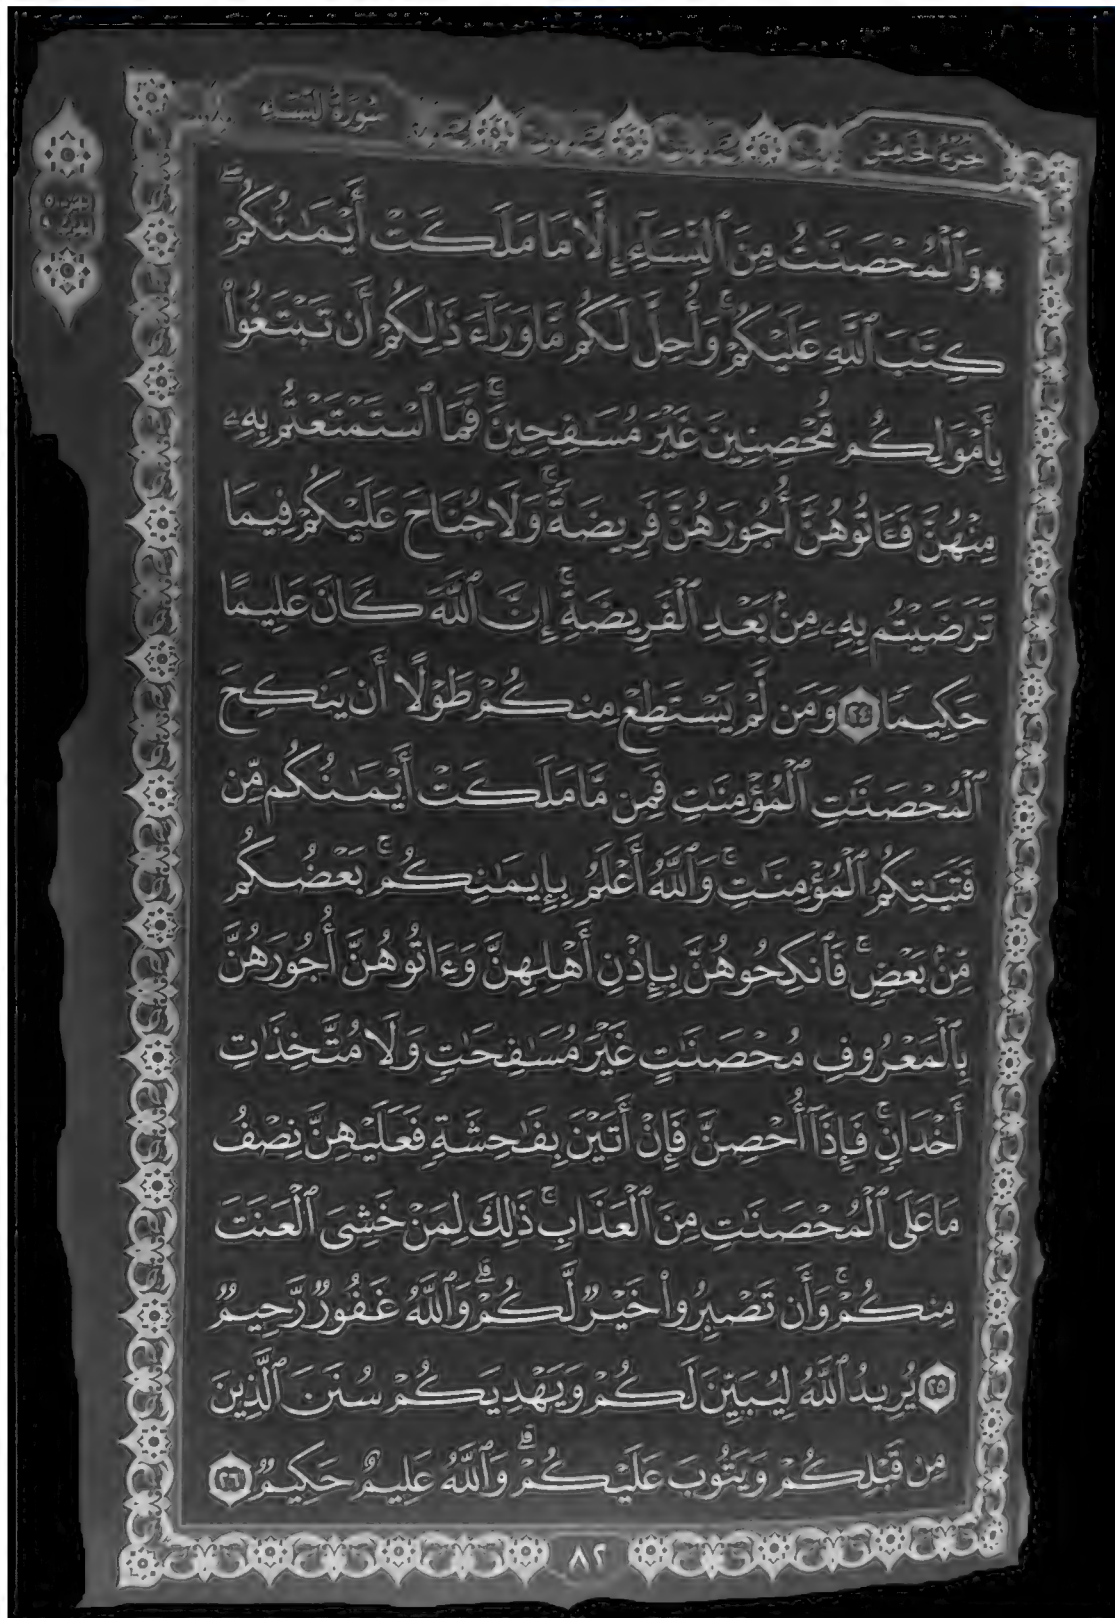 سُورَةُ النِّسَاءِ
الجُزْءُ الخَامِسُ
۞ وَٱلْمُحْصَنَٰتُ مِنَ ٱلنِّسَآءِ إِلَّا مَا مَلَكَتْ أَيْمَٰنُكُمْ ۖ
كِتَٰبَ ٱللَّهِ عَلَيْكُمْ ۚ وَأُحِلَّ لَكُم مَّا وَرَآءَ ذَٰلِكُمْ أَن تَبْتَغُوا۟
بِأَمْوَٰلِكُم مُّحْصِنِينَ غَيْرَ مُسَٰفِحِينَ ۚ فَمَا ٱسْتَمْتَعْتُم بِهِۦ
مِنْهُنَّ فَـَٔاتُوهُنَّ أُجُورَهُنَّ فَرِيضَةً ۚ وَلَا جُنَاحَ عَلَيْكُمْ فِيمَا
تَرَٰضَيْتُم بِهِۦ مِنۢ بَعْدِ ٱلْفَرِيضَةِ ۚ إِنَّ ٱللَّهَ كَانَ عَلِيمًا
حَكِيمًا ٢٤ وَمَن لَّمْ يَسْتَطِعْ مِنكُمْ طَوْلًا أَن يَنكِحَ
ٱلْمُحْصَنَٰتِ ٱلْمُؤْمِنَٰتِ فَمِن مَّا مَلَكَتْ أَيْمَٰنُكُم مِّن
فَتَيَٰتِكُمُ ٱلْمُؤْمِنَٰتِ ۚ وَٱللَّهُ أَعْلَمُ بِإِيمَٰنِكُم ۚ بَعْضُكُم
مِّنۢ بَعْضٍ ۚ فَٱنكِحُوهُنَّ بِإِذْنِ أَهْلِهِنَّ وَءَاتُوهُنَّ أُجُورَهُنَّ
بِٱلْمَعْرُوفِ مُحْصَنَٰتٍ غَيْرَ مُسَٰفِحَٰتٍ وَلَا مُتَّخِذَٰتِ
أَخْدَانٍ ۚ فَإِذَآ أُحْصِنَّ فَإِنْ أَتَيْنَ بِفَٰحِشَةٍ فَعَلَيْهِنَّ نِصْفُ
مَا عَلَى ٱلْمُحْصَنَٰتِ مِنَ ٱلْعَذَابِ ۚ ذَٰلِكَ لِمَنْ خَشِىَ ٱلْعَنَتَ
مِنكُمْ ۚ وَأَن تَصْبِرُوا۟ خَيْرٌ لَّكُمْ ۗ وَٱللَّهُ غَفُورٌ رَّحِيمٌ
٢٥ يُرِيدُ ٱللَّهُ لِيُبَيِّنَ لَكُمْ وَيَهْدِيَكُمْ سُنَنَ ٱلَّذِينَ
مِن قَبْلِكُمْ وَيَتُوبَ عَلَيْكُمْ ۗ وَٱللَّهُ عَلِيمٌ حَكِيمٌ ٢٦
٨٢